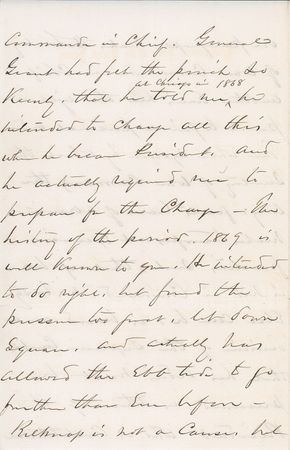 Commander in Chief. General
Grant had felt the pinch so
keenly, that he told me
at Chicago in 1868
he
intended to change all this
when he became President. and
he actually required me to
prepare for the Change - The
history of the period. 1869 is
well known to you. He intended
to do right. but found the
pressure too great. let down
square. and actually has
allowed the Ebb tide to go
further than Ever before -
Belknap is not a Cause, but